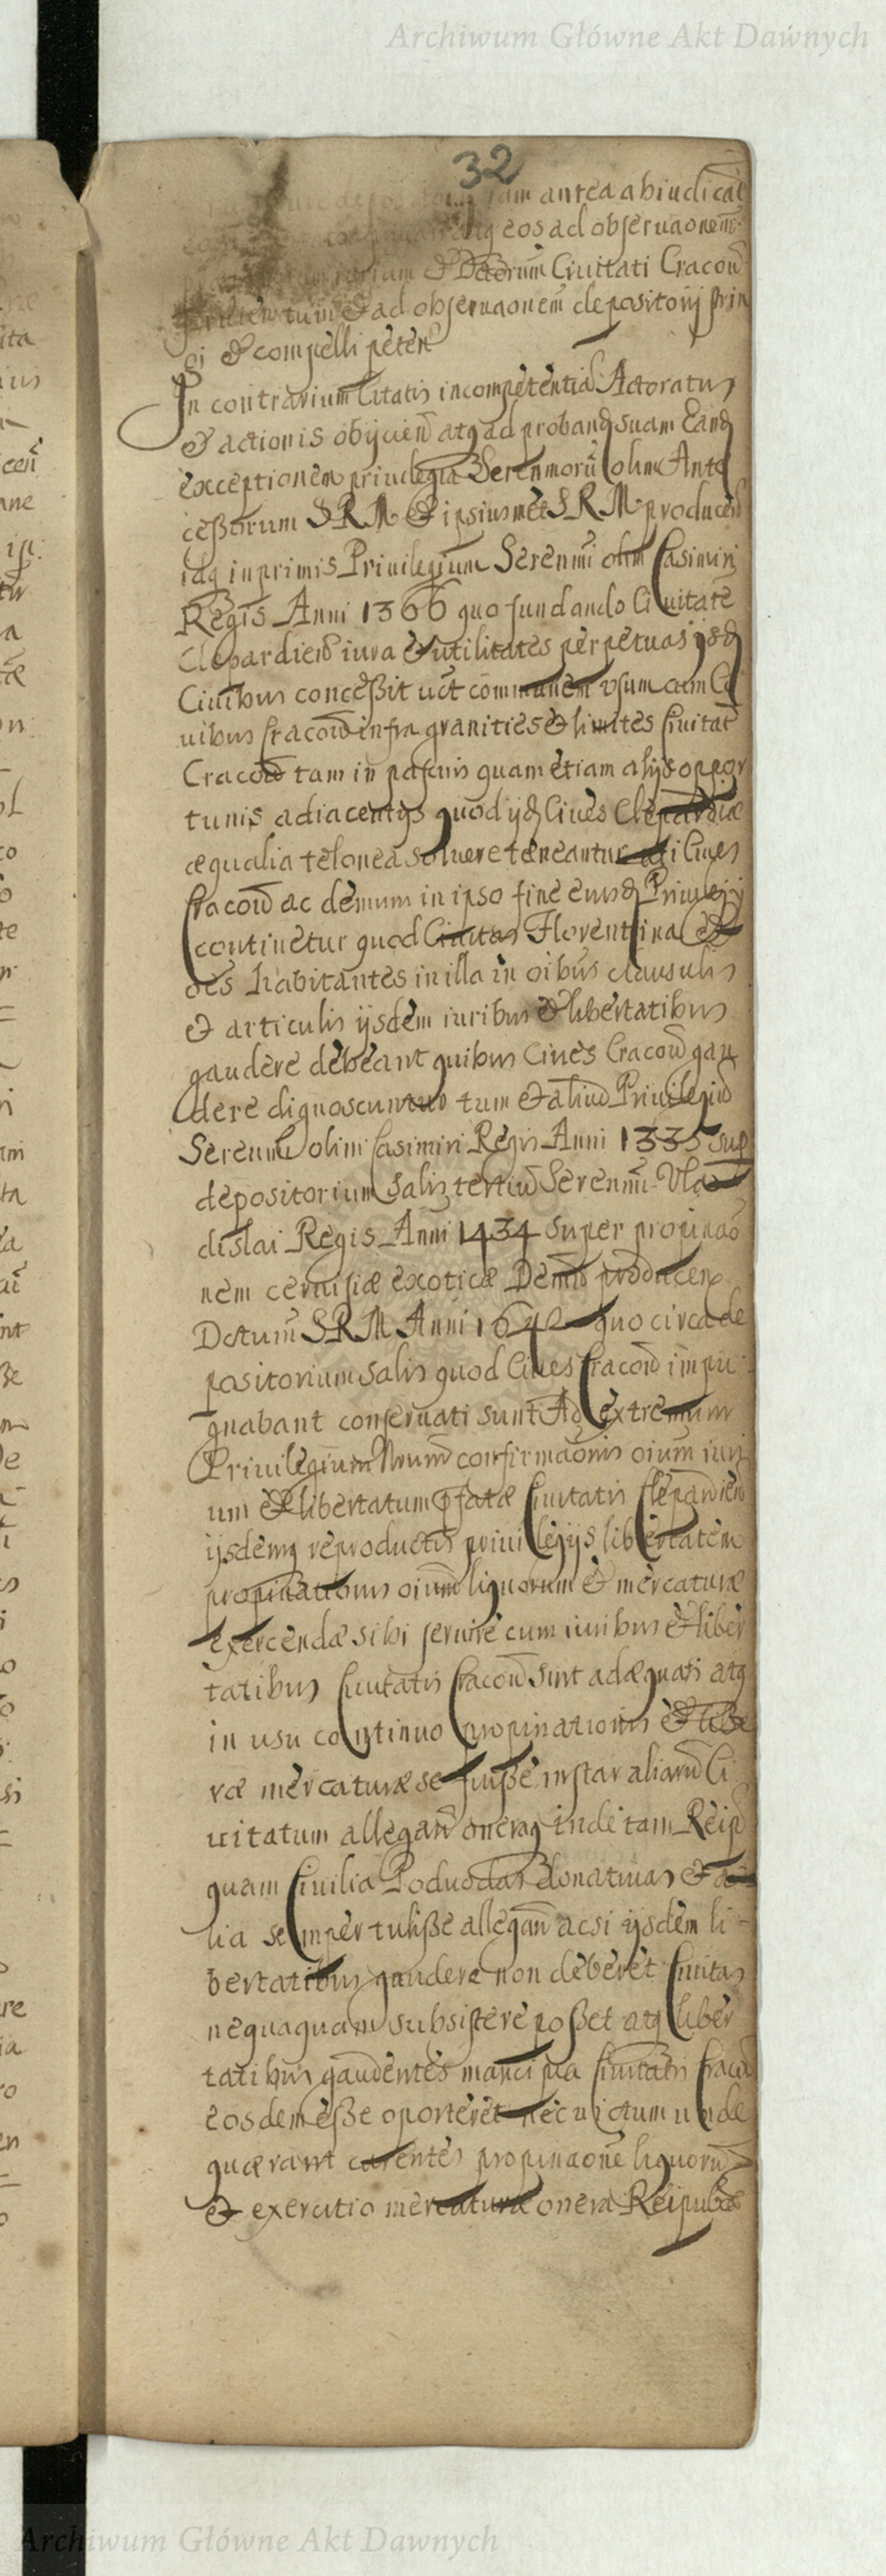 Archiwum Główne Akt Dawnych
32
iam antea abiudicat
eos ad obseruaonem
Dctorum Ciuitati Cracou
tum & ad obseruaonem depositorij strin
gi & compelli peten
In contrarium Citatis incompetentia Actoratus
& actionis obijcien atq ad proband suam Eand
exceptionem priuilegia Serenmorū olim Ante
cessorum S R M & ipsiusmet S R M producen
idq inprimis Priuilegium Serenmi olim Casimiri
Regis Anni 1366 quo fundando Ciuitatē
Clepardien iura & utilitates perpetuas ijsd
Ciuibus concessit uct communem usum cum Ci
uibus Cracou infra granities & limites Ciuitat
Cracou tam in pascuis quam etiam alijs oppor
tunis adiacentijs quod ijd Ciues Clepardiæ
æqualia telonea soluere teneantur uti Ciues
Cracou ac demum in ipso fine eiusd Priuilegij
continetur quod Ciuitas Florentina &
oēs habitantes in illa in oibus clausulis
et articulis ijsdem iuribus & libertatibus
gaudere debeant quibus Ciues Cracou gau
dere dignoscuntur tum & aliud Priuilegiū
Serenmi olim Casimiri Regis Anni 1335 sup
depositorium Salis tertiū Serenmi Vla
dislai Regis Anni 1434 super propinaō
nem ceruisiæ exoticæ Demū producen
Dctum S R M Anni 1642 quo circa de
positorium salis quod Ciues Cracou impu
gnabant conseruati sunt Ad extremum
Priuilegium Nrum confirmaonis oium iuri
um & libertatum pfatæ Ciuitatis Clepardien
ijsdemq reproductis priuilegijs libertatem
propinationis oium liquorum & mercaturæ
exercendæ sibi seruire cum iuribus & liber
tatibus Ciuitatis Cracou sint adæquati atq
in usu continuo propinationis & libe
ræ mercaturæ se fuisse instar aliarū Ci
uitatum allegan oneraq inde tam Reip
quam Ciuilia Poduodas donatiuas & a
lia semper tulisse allegan acsi ijsdem li
bertatibus gaudere non deberet Ciuitas
nequaquam subsistere posset atq liber
tatibus gaudentes mancipia Ciuitatis Cracou
eosdem esse oporteret nec uictum unde
quærant carentes propinaone liquorū
et exercitio mercaturæ onera Reipubcæ
Archiwum Główne Akt Dawnych